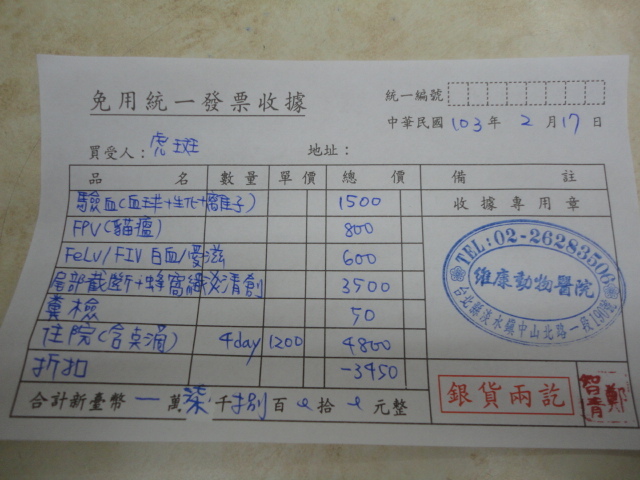 免用統一發票收據
統一編號
中華民國 103 年 2 月 17 日
買受人：虎斑 地址：
品 名 數量 單價 總 價 備 註
驗血(血球+生化+離子) 1500 收據專用章
FPV(貓瘟) 800
FeLV/FIV 白血/愛滋 600
尾部截斷+蜂窩織炎清創 3500
糞檢 50
住院(含點滴) 4day 1200 4800
折扣 -3450
合計新臺幣 一 萬 柒 千 捌 百 拾 元整
TEL: 02-2628350
維康動物醫院
台北縣淡水鎮中山北路一段
銀貨兩訖
鄭智青